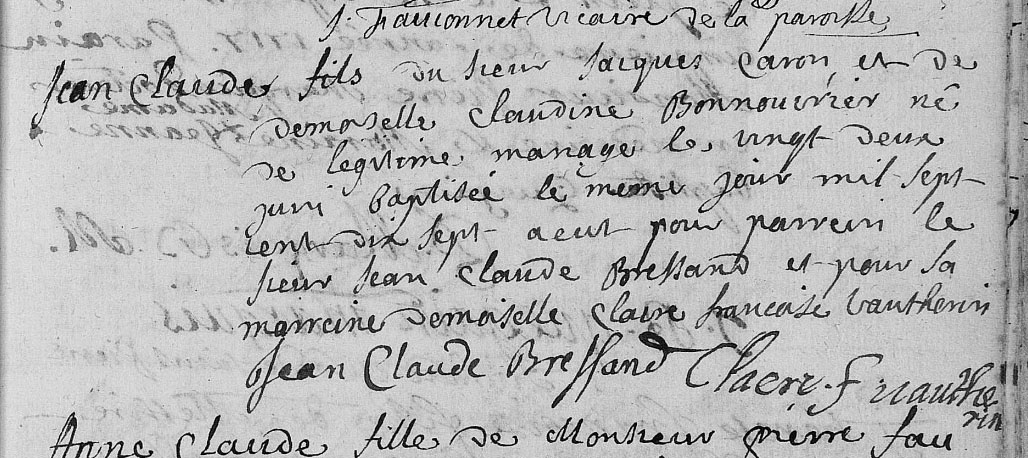 J. Fauconnet vicaire de la paroisse
Jean Claude fils du sieur Jacques Caron et de
demoiselle Claudine Bonnouvrier né
de legitime mariage le vingt deux
juin baptisée le meme jour mil sept
cent dix sept a eut pour parrein le
sieur Jean Claude Bressand et pour sa
marreine demoiselle Claire francoise Vautherin
Jean Claude Bressand Claere f vauthe
rin
Anne Claude fille de Monsieur pierre fau